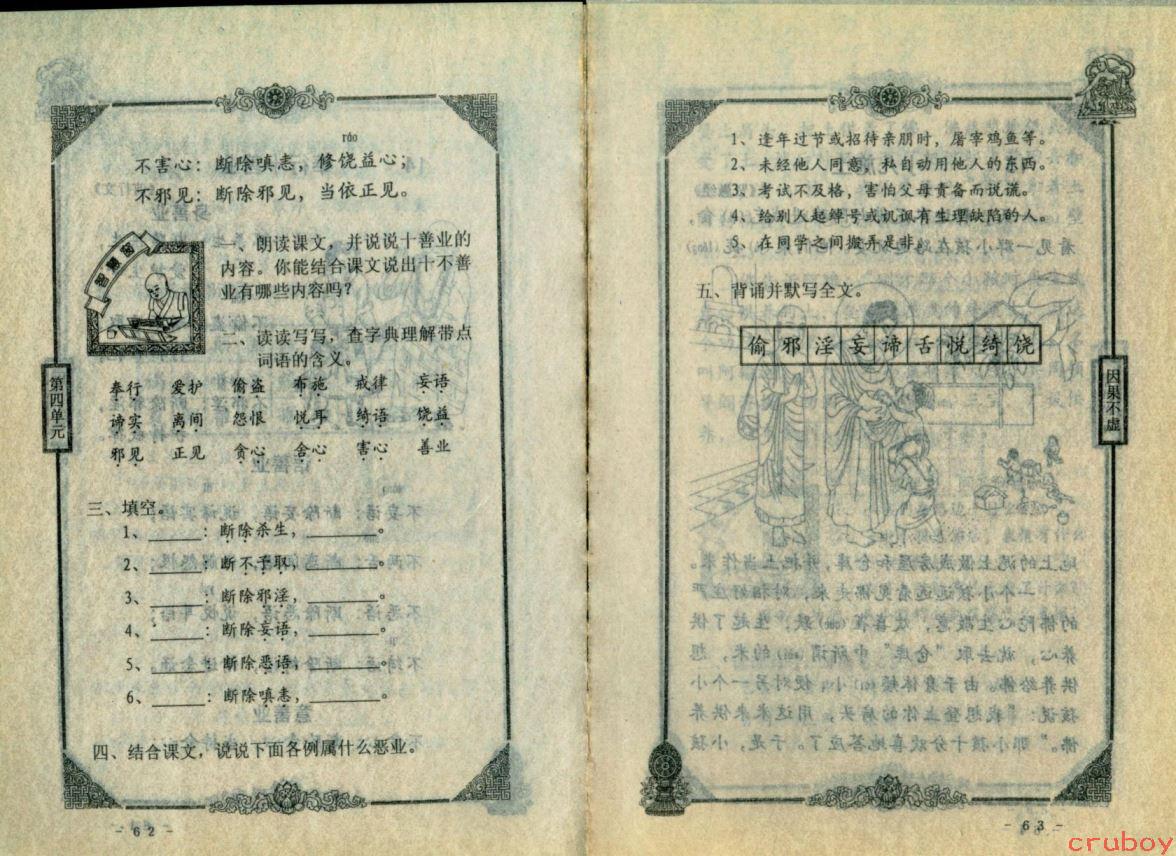 ráo
不害心：断除嗔恚，修饶益心；
不邪见：断除邪见，当依正见。
智慧窗
一、朗读课文，并说说十善业的
内容。你能结合课文说出十不善
业有哪些内容吗？
二、读读写写，查字典理解带点
词语的含义。
奉行 爱护 偷盗 布施 戒律 妄语
谛实 离间 怨恨 悦耳 绮语 饶益
邪见 正见 贪心 舍心 害心 善业
三、填空。
1、______：断除杀生，________。
2、______：断不予取，________。
3、______：断除邪淫，________。
4、______：断除妄语，________。
5、______：断除恶语，________。
6、______：断除嗔恚，________。
四、结合课文，说说下面各例属什么恶业。
第四单元
- 62 -
1、逢年过节或招待亲朋时，屠宰鸡鱼等。
2、未经他人同意，私自动用他人的东西。
3、考试不及格，害怕父母责备而说谎。
4、给别人起绰号或讥讽有生理缺陷的人。
5、在同学之间搬弄是非。
五、背诵并默写全文。
偷邪淫妄谛舌悦绮饶
因果不虚
- 63 -
cruboy